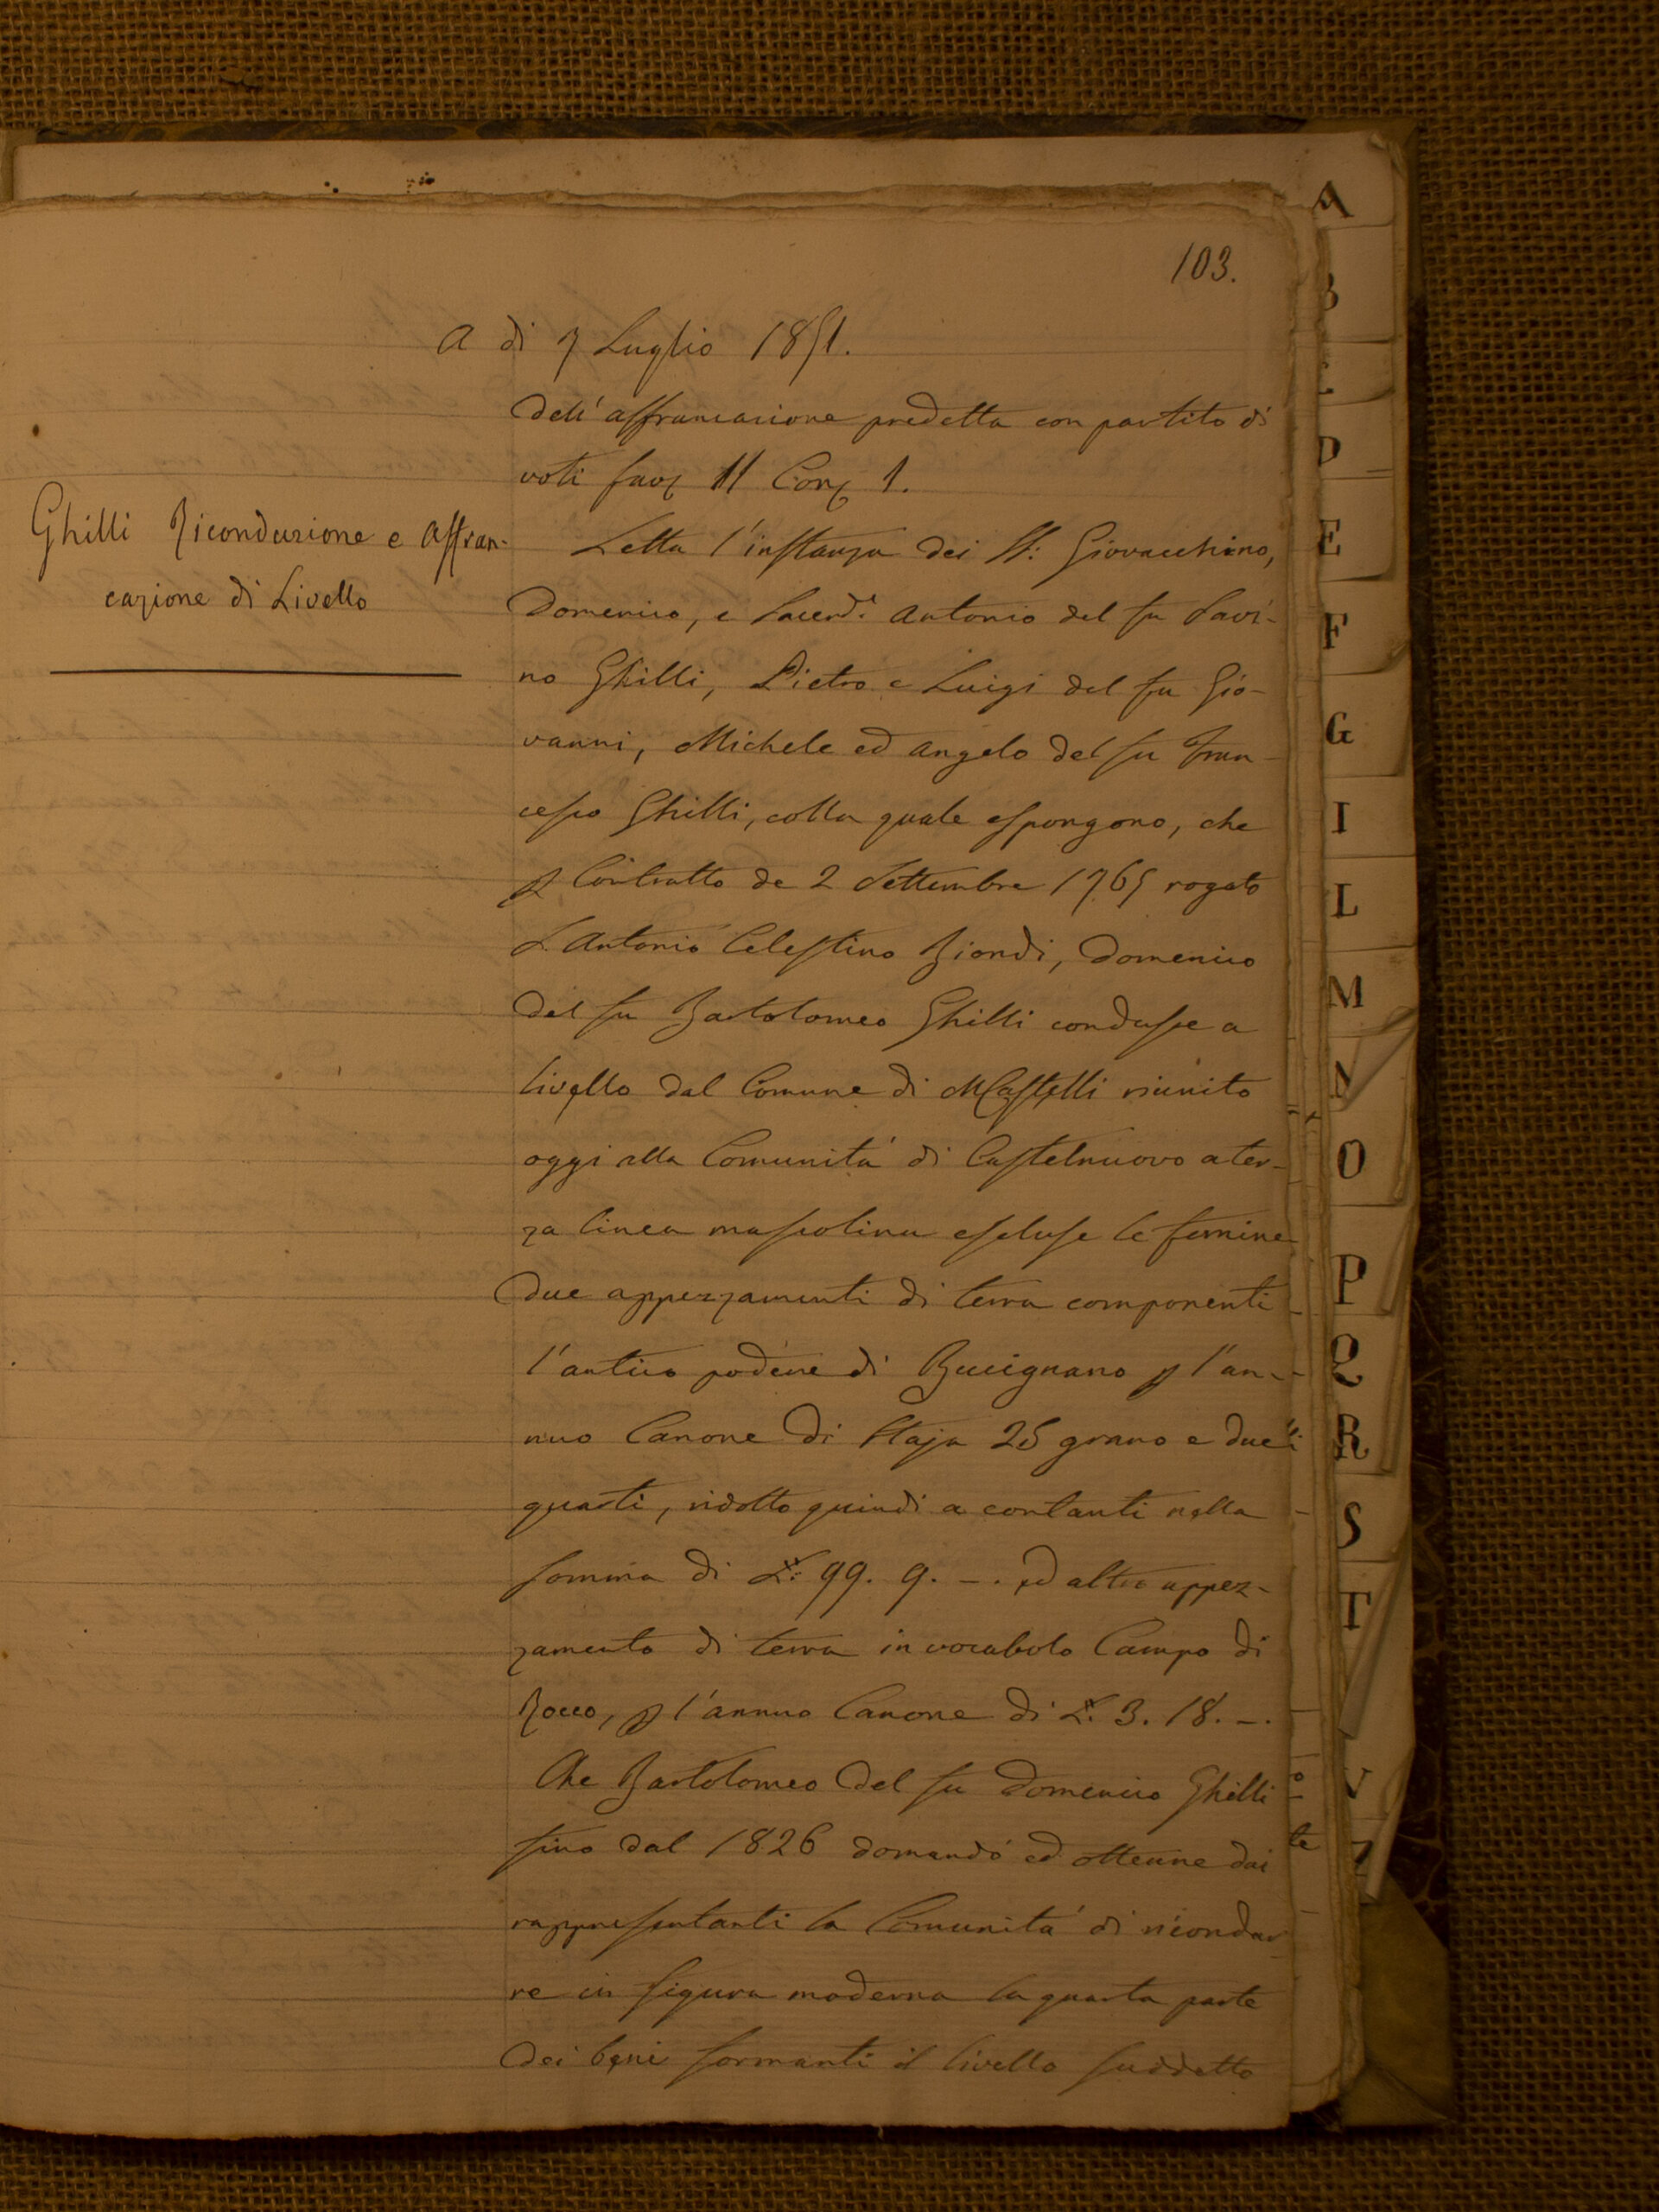 103.
A dì 7 Luglio 1851.
dell'affrancazione predetta con partito di
voti fav: 11 Con: 1.
Ghilli Riconduzione e Affran-
cazione di Livello
Letta l'instanza dei SS: Giovacchino,
Domenico, e Sacerd: Antonio del fu Savi-
no Ghilli, Pietro e Luigi del fu Gio-
vanni, Michele ed Angelo del fu Fran-
cesco Ghilli, colla quale espongono, che
p Contratto de 2 Settembre 1765 rogato
S. Antonio Celestino Biondi, Domenico
del fu Bartolomeo Ghilli condusse a
livello dal Comune di MCastelli riunito
oggi alla Comunità di Castelnuovo a ter-
za linea mascolina escluse le femine
due appezzamenti di terra componenti
l'antico podere di Bucignano p l'an-
nuo Canone di Staja 25 grano e due
quarti, ridotto quindi a contanti nella
somma di L: 99. 9. –. ed altro appez-
zamento di terra in vocabolo Campo di
Rocco, p l'annuo Canone di L. 3. 18. –.
Che Bartolomeo del fu Domenico Ghilli
fino dal 1826 domandò ed ottenne dai
rappresentanti la Comunità di ricondur
re in figura moderna la quarta parte
dei beni formanti il livello suddetto
A
B
D
E
F
G
I
L
M
N
O
P
Q
R
S
T
V
Z